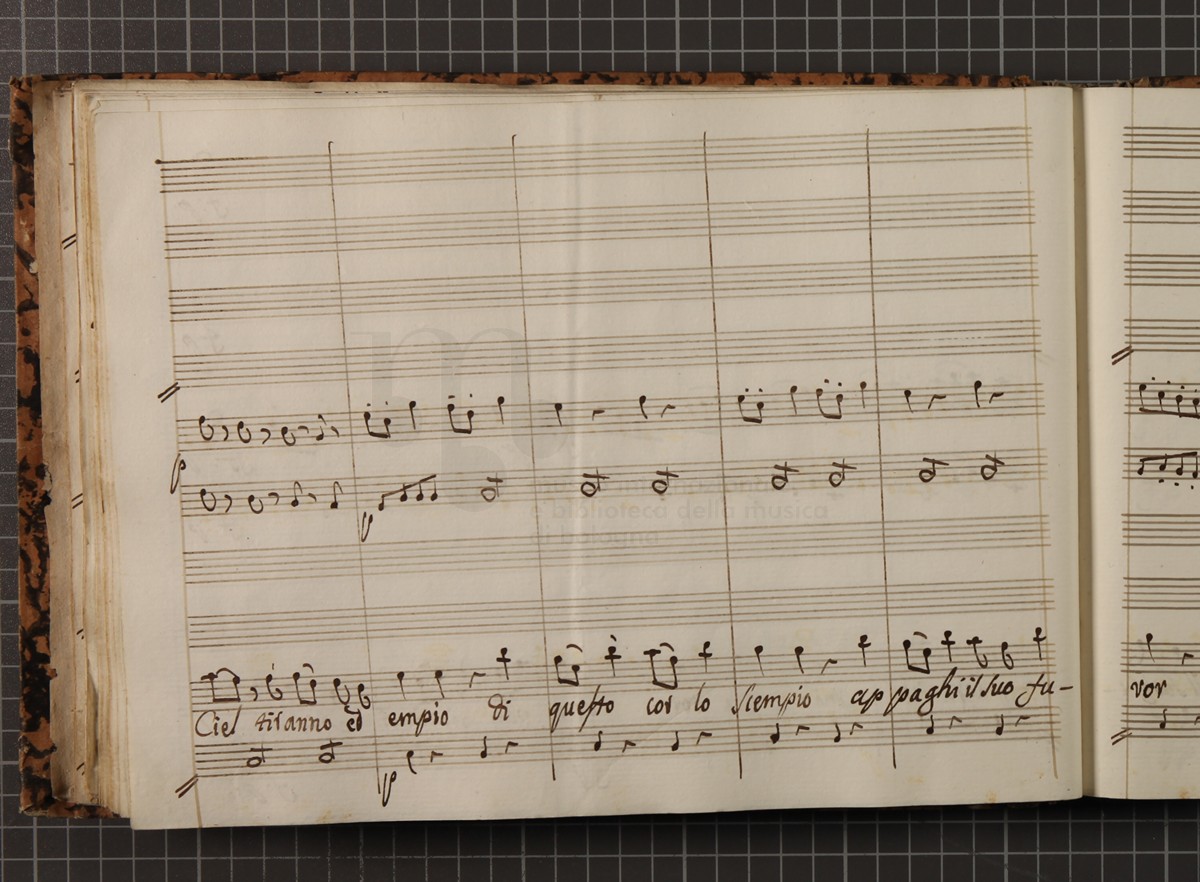 p
p
museo internazionale
e biblioteca della musica
di bologna
Ciel tiranno ed empio di questo cor lo scempio appaghi il suo fu-
vor
p